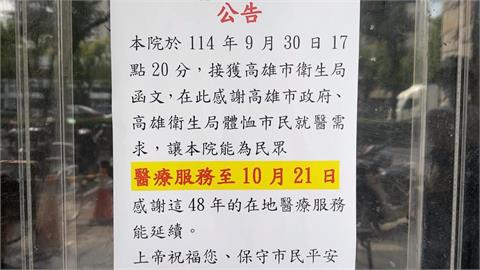 公告
本院於 114 年 9 月 30 日 17
點 20 分，接獲高雄市衛生局
函文，在此感謝高雄市政府、
高雄衛生局體恤市民就醫需
求，讓本院能為民眾
醫療服務至 10 月 21 日
感謝這 48 年的在地醫療服務
能延續。
上帝祝福您、保守市民平安